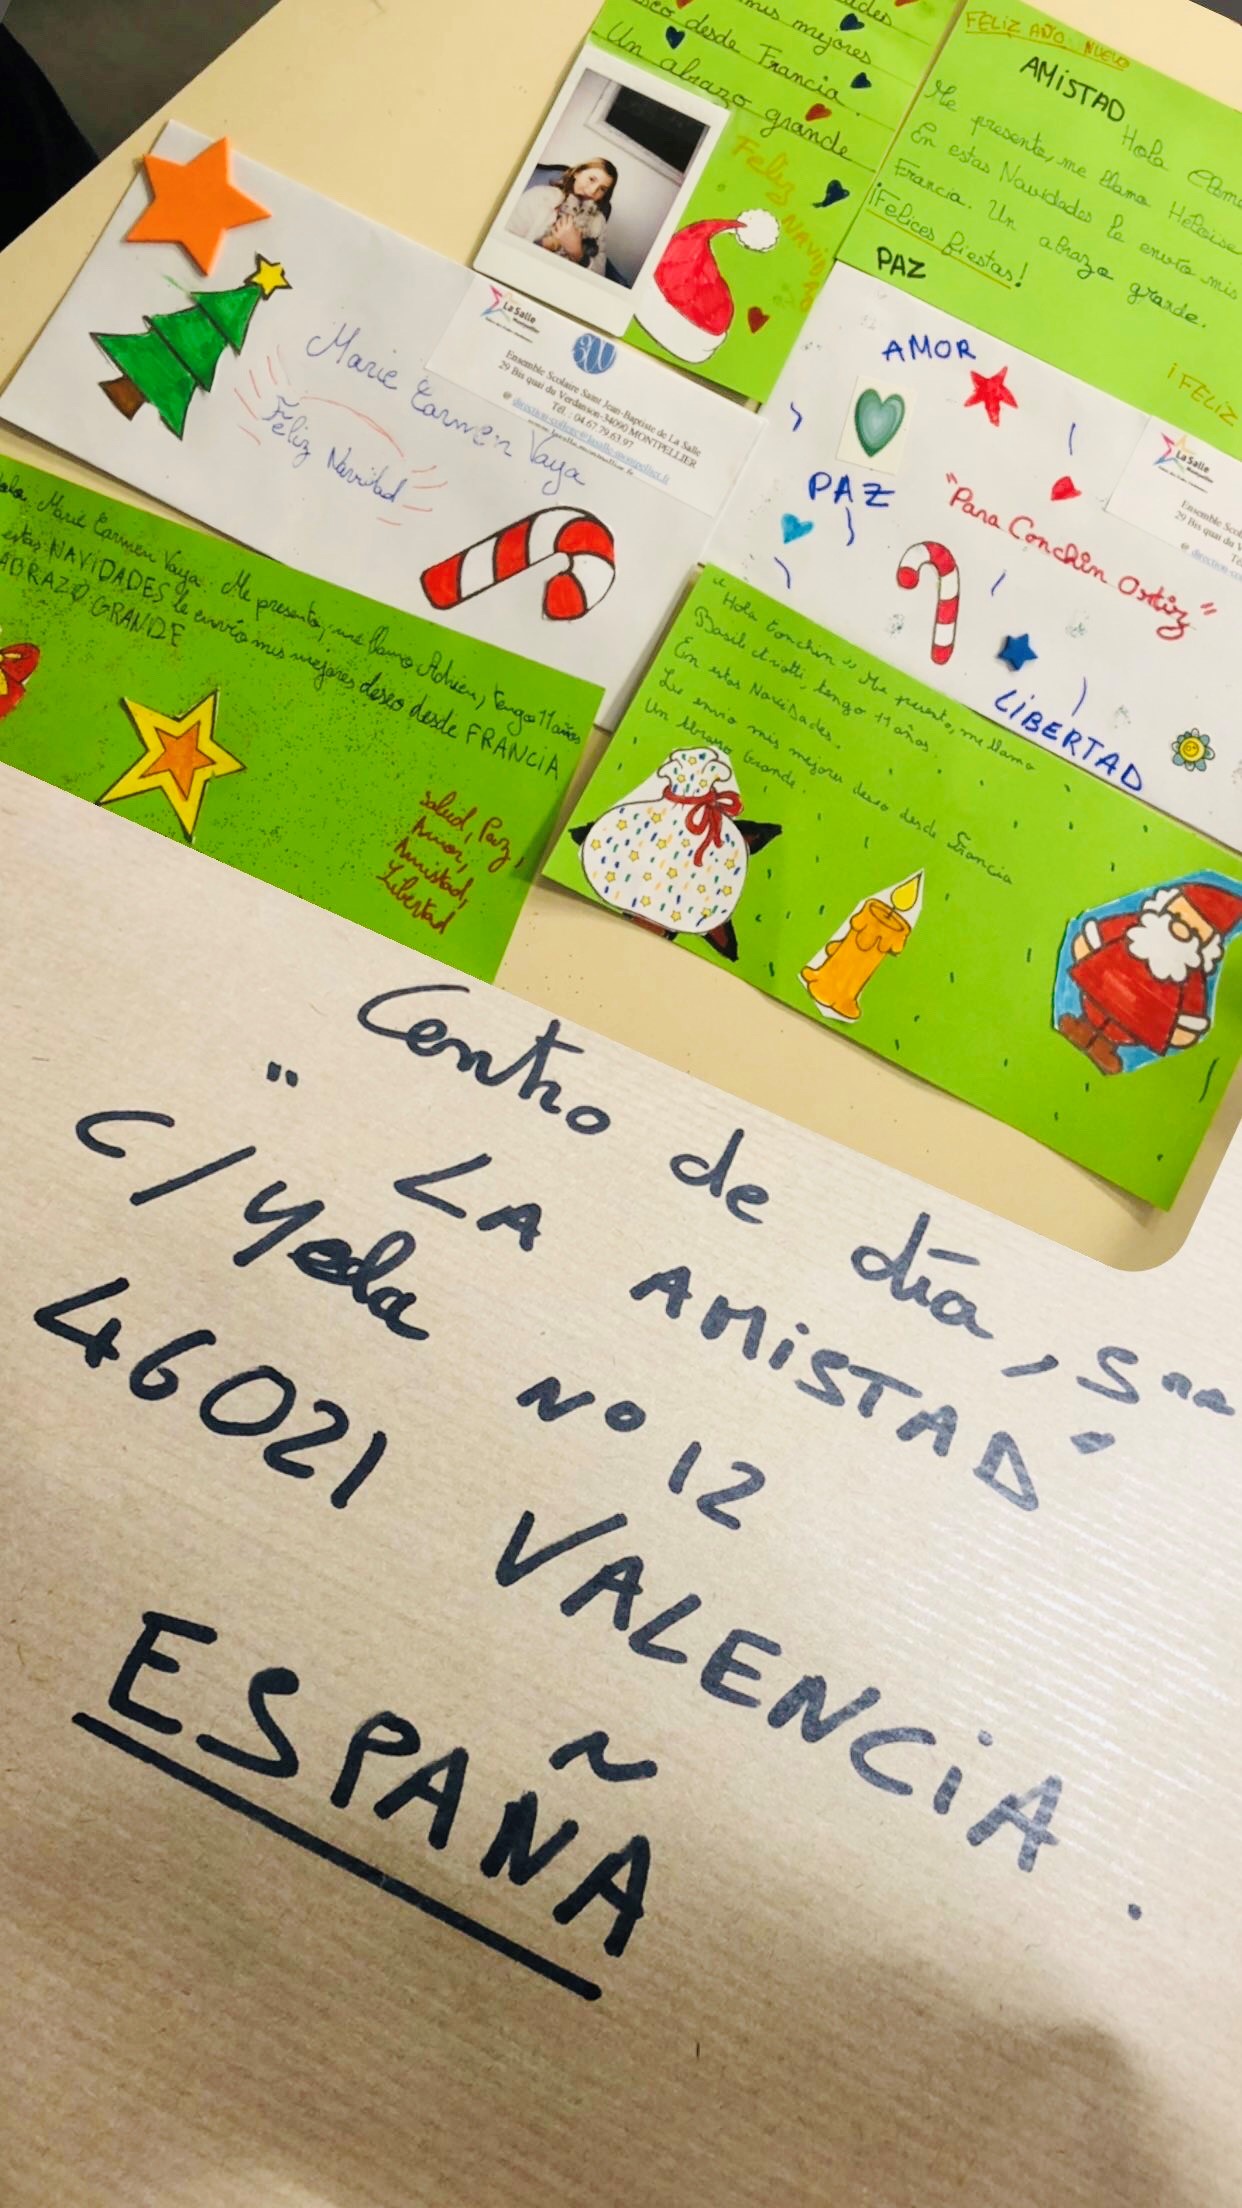 mis mejores
desde Francia
Un abrazo grande
Feliz
NAVIDAD
FELIZ AÑO NUEVO
AMISTAD
Hola
Me presento, me llama Héloise
En estas Navidades le envío mis
Francia. Un abrazo grande.
¡Felices fiestas!
PAZ
¡FELIZ
La Salle
Montpellier
Ensemble Scolaire Saint Jean-Baptiste de La Salle
29 Bis quai du Verdanson-34090 MONTPELLIER
Tél. : 04.67.79.63.97
@ direction-college@lasalle-montpellier.fr
Marie Carmen Vaya
Feliz Navidad
AMOR
PAZ
"Para Conchin Ortiz"
LIBERTAD
La Salle
Ensemble Scol
29 Bis quai du V
Marie Carmen Vaya. Me presento, me llamo Adrien, tengo 11 años
estas NAVIDADES le envío mis mejores deseo desde FRANCIA
ABRAZO GRANDE
Salud, Paz,
Amor,
Amistad,
Libertad
"Hola Conchin", Me presento, me llamo
Basile tengo 11 años.
En estas Navidades.
Le envio mis mejores deseo desde Francia
Un Abrazo Grande.
Centro de día, Sra
" LA AMISTAD"
C/ Yecla Nº 12
46021 VALENCIA.
ESPAÑA